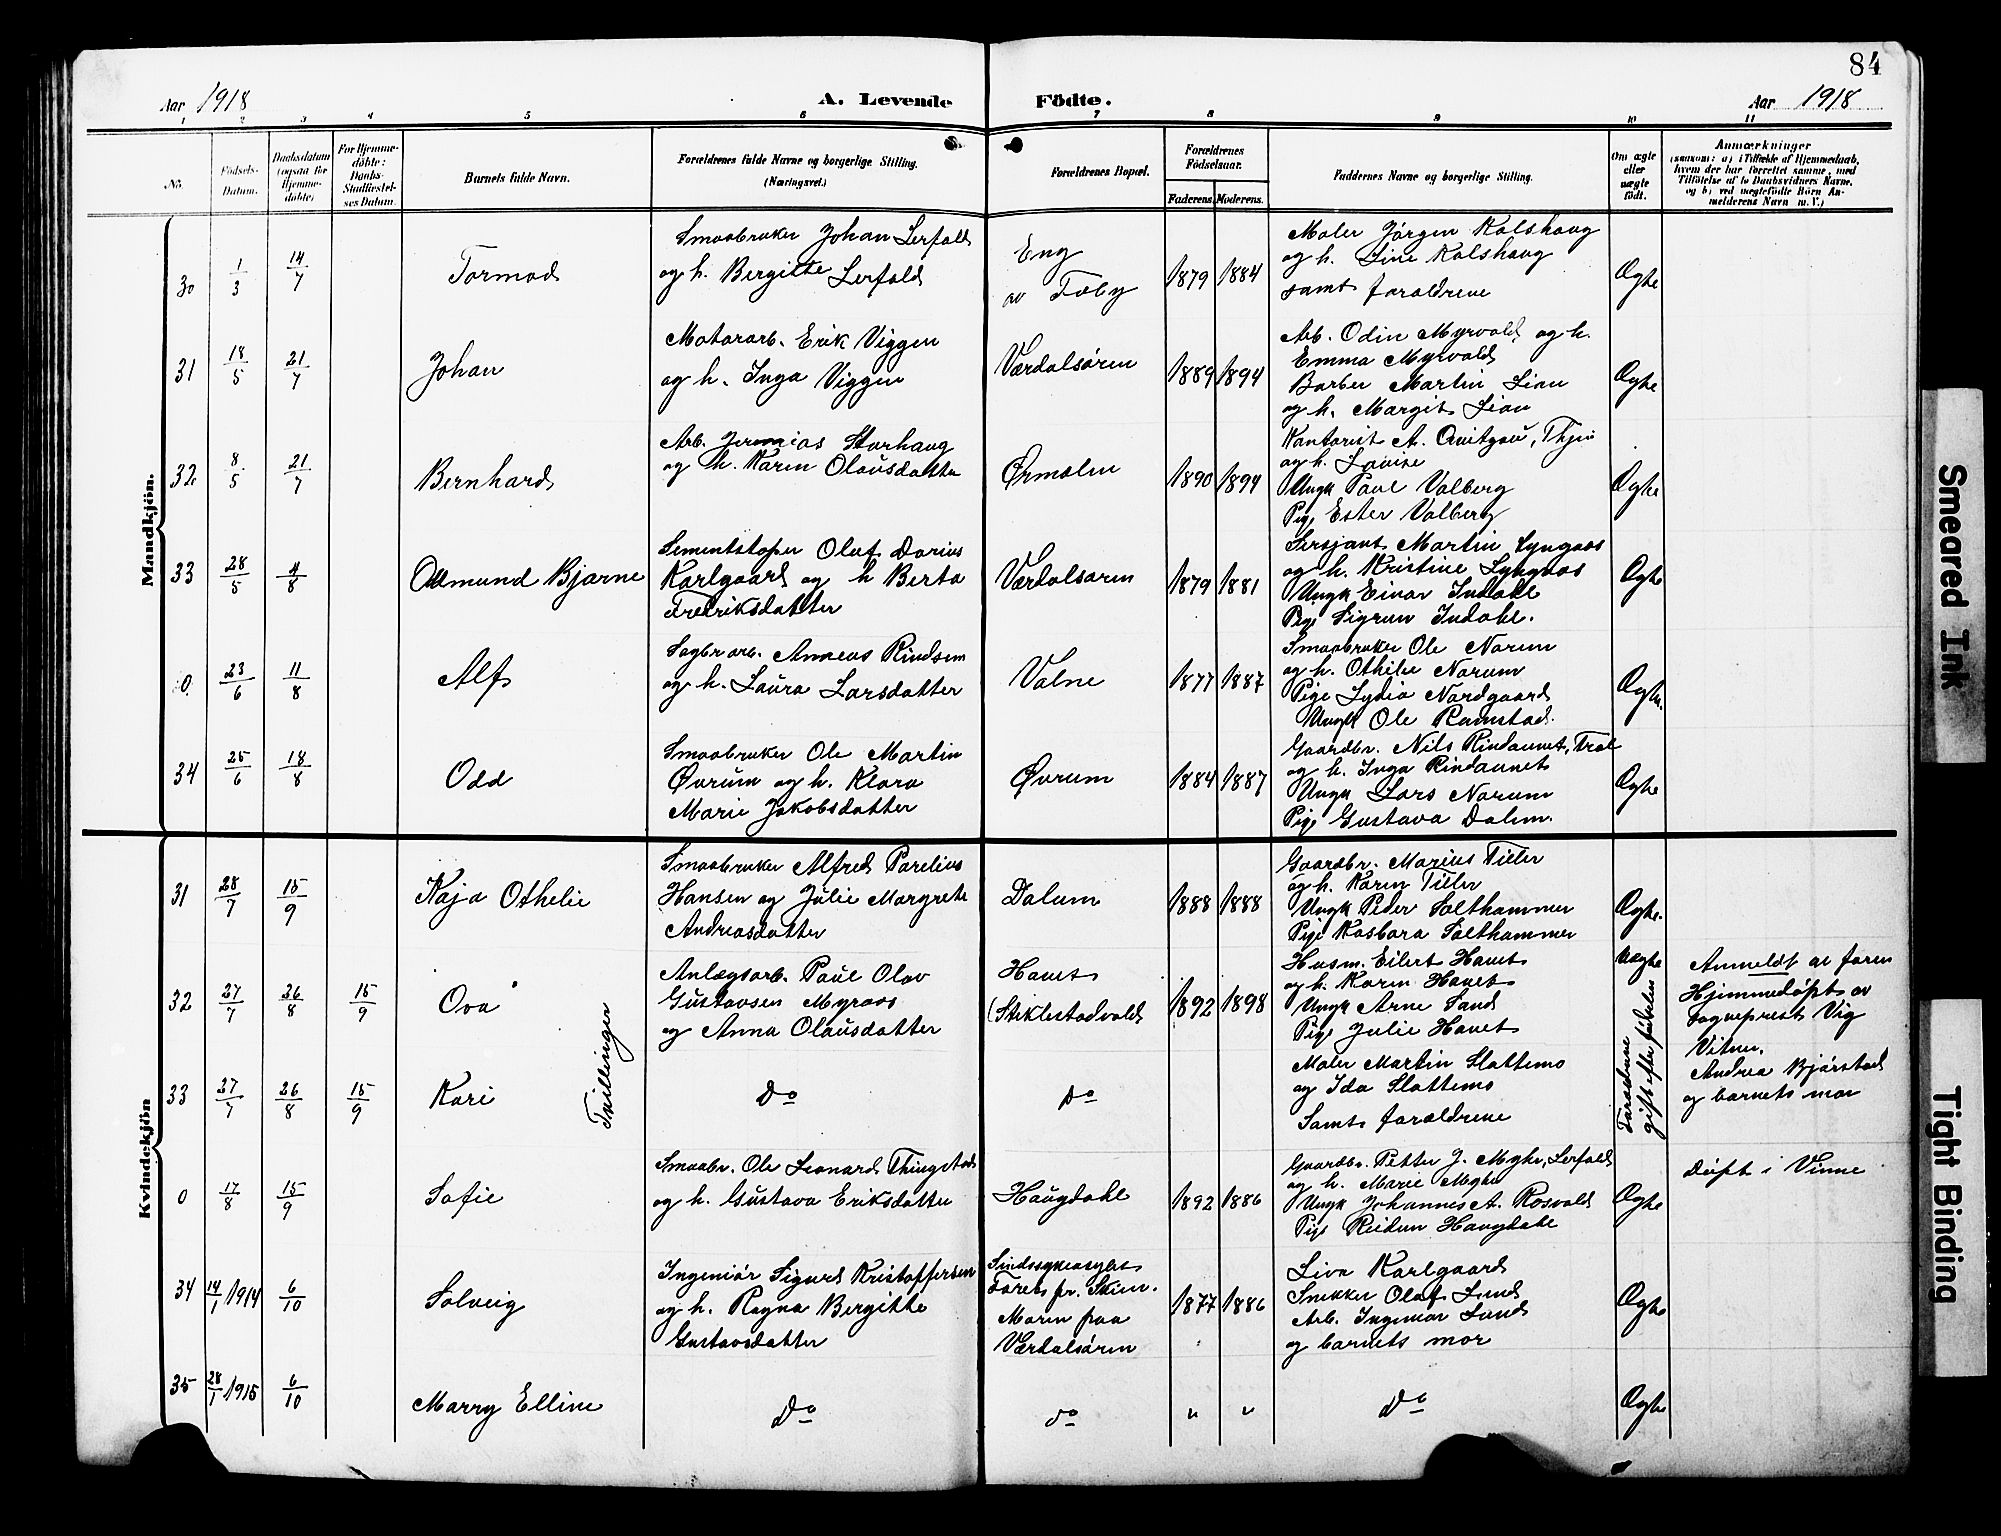 84
Aar 1918
A. Levende Födte.
Aar 1918
1 2 3 4 5 6 7 8 9 10 11
No.
Födsels-Datum.
Daabsdatum (ogsaa för Hjemme-döbte)
For Hjemme-döbte: Daabs-Stadfæstel-ses Datum.
Barnets fulde Navn.
Forældrenes fulde Navne og borgerlige Stilling. (Næringsvei.)
Forældrenes Bopæl.
Forældrenes Födselsaar.
Faderens. Moderens.
Faddernes Navne og borgerlige Stilling.
Om ægte eller uægte födt.
Anmærkninger
(saasom: a) i Tilfælde af Hjemmedaab,
hvem der har forrettet samme, med
Tilföielse af to Daabsvidners Navne,
og b) ved uægtefödte Börn An-
melderens Navn m. V.)
Mandkjön.
30 1/3 14/7 Tormod
Smaabruker Johan Lerfald
og h. Bergitte Lerfald
Eng
av Fæby
1879 1884
Maler Jørgen Kolshaug
og h. Line Kolshaug
samt forældrene
Ægte
31 18/5 21/7 Johan
Motorarb. Erik Viggen
og h. Inga Viggen
Værdalsøren
1889 1894
Arb. Odin Myrvold og h.
Emma Myrvold
Barber Martin Lian
og h. Margit Lian
Ægte
32 8/5 21/7 Bernhard
Arb. Jeremias Storhaug
og h. Karen Olausdatter
Ørmelen
1890 1894
Kontorist A.
og h. Lovise
Ungk Paul Valberg
Pige Ester Valberg
Ægte
33 28/5 4/8 Odmund Bjarne
Sementstøper Olaf Darius
Karlgaard og h Berta
Fredriksdatter
Værdalsøren
1879 1881
Sersjant Martin Lyngaas
og h. Kristine Lyngaas
Ungk Einar Indahl
Pige Sigrun Indahl.
Ægte
0 23/6 11/8 Alf
Sagbr arb. Anneus Rindsem
og h. Laura Larsdatter
Volne
1877 1887
Smaabruker Ole Norum
og h. Othilie Norum
Pige Lydia Nordgaard
Ungk Ole Ramstad.
Ægte.
34 25/6 18/8 Odd
Smaabruker Ole Martin
Øvrum og h. Klara
Marie Jakobsdatter
Øvrum
1884 1887
Gaardbr. Nils Rindaunet,
og h. Inga Rindaunet
Ungk Lars Norum
Pige Gustava Dalum.
Ægte
Kvindekjön
31 28/7 15/9 Kaja Othelie
Smaabruker Alfred Parelius
Hansen og Julie Margrete
Andreasdatter
Dalum
1888 1888
Gaardbr. Marius Tiller
og h. Karen Tiller
Ungk Peder Salthammer
Pige Kasbara Salthammer
Ægte.
32 27/7 26/8 15/9 Ova
Tvillinger
Anlægsarb. Paul Olav
Gustavsen Myraas
og Anna Olausdatter
Havet
(Stiklestadvald
1892 1898
Husm. Eilert Havet
og h. Karen Havet
Ungk Arne Sand
Pige Julie Havet
Uægte
Forældrene
gift efter fødselen
Anmeldt av faren
Hjemmedøpt av
Sogneprest Vig
Vitner.
Andrea Bjørstad
og barnets mor
33 27/7 26/8 15/9 Kari
Do
Do
Maler Martin Slottemo
og Ida Slottemo
Samt forældrene
0 17/8 15/9 Sofie
Smaabr. Ole Leonard Thingstad
og h. Gustava Eriksdatter
Haugdahl
1892 1886
Gaardbr. Petter J. Myhr, Lerfald
og h. Marie Myhr
Ungk Johannes A. Rosvold
Pige Reidun Haugdahl
Ægte
Døpt i Vinne
34 14/1 1914 6/10 Solveig
Ingeniør Sigurd Kristoffersen
og h. Ragna Bergitte
Gustavsdatter
Sindssykeasylet
Faret pr. Skien.
Moren paa
Værdalsøren
1877 1886
Liva Karlgaard
Snekker Olaf Lund
Arb. Ingemar Lund
og barnets mor
Ægte
35 28/1 1915 6/10 Marry Elline
Do
do
" "
Do
Ægte
Smeared Ink
Tight Binding